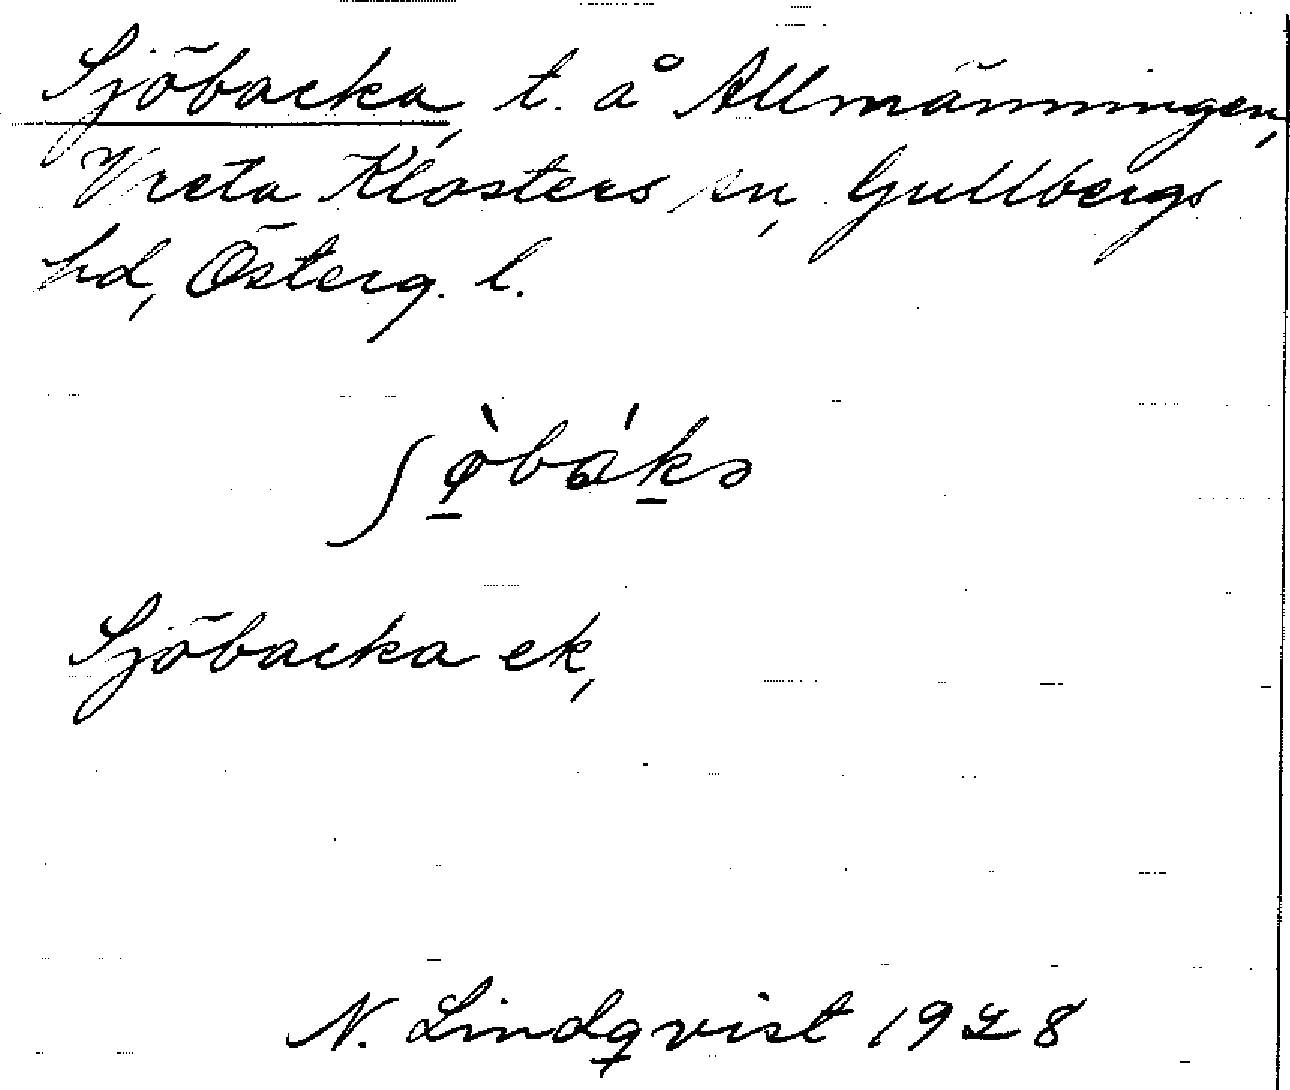 Sjöbacka, t. å Allmänningen,
Vreta Klosters sn, Gullbergs
hd, Österg. l.
ʃø̠̀bák̠ə
Sjöbacka ek,
N. Lindqvist 1928